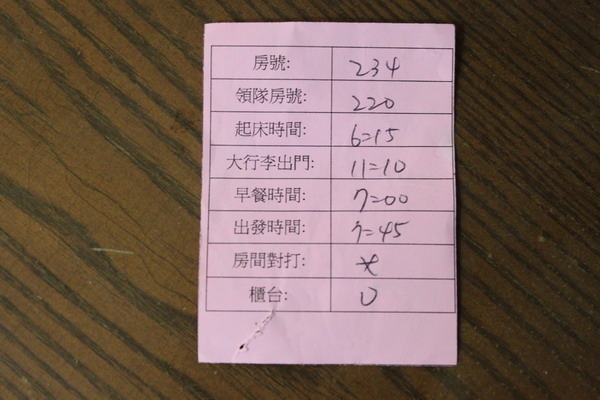 房號: 234
領隊房號: 220
起床時間: 6=15
大行李出門: 11=10
早餐時間: 7=00
出發時間: 7=45
房間對打: *
櫃台: 0